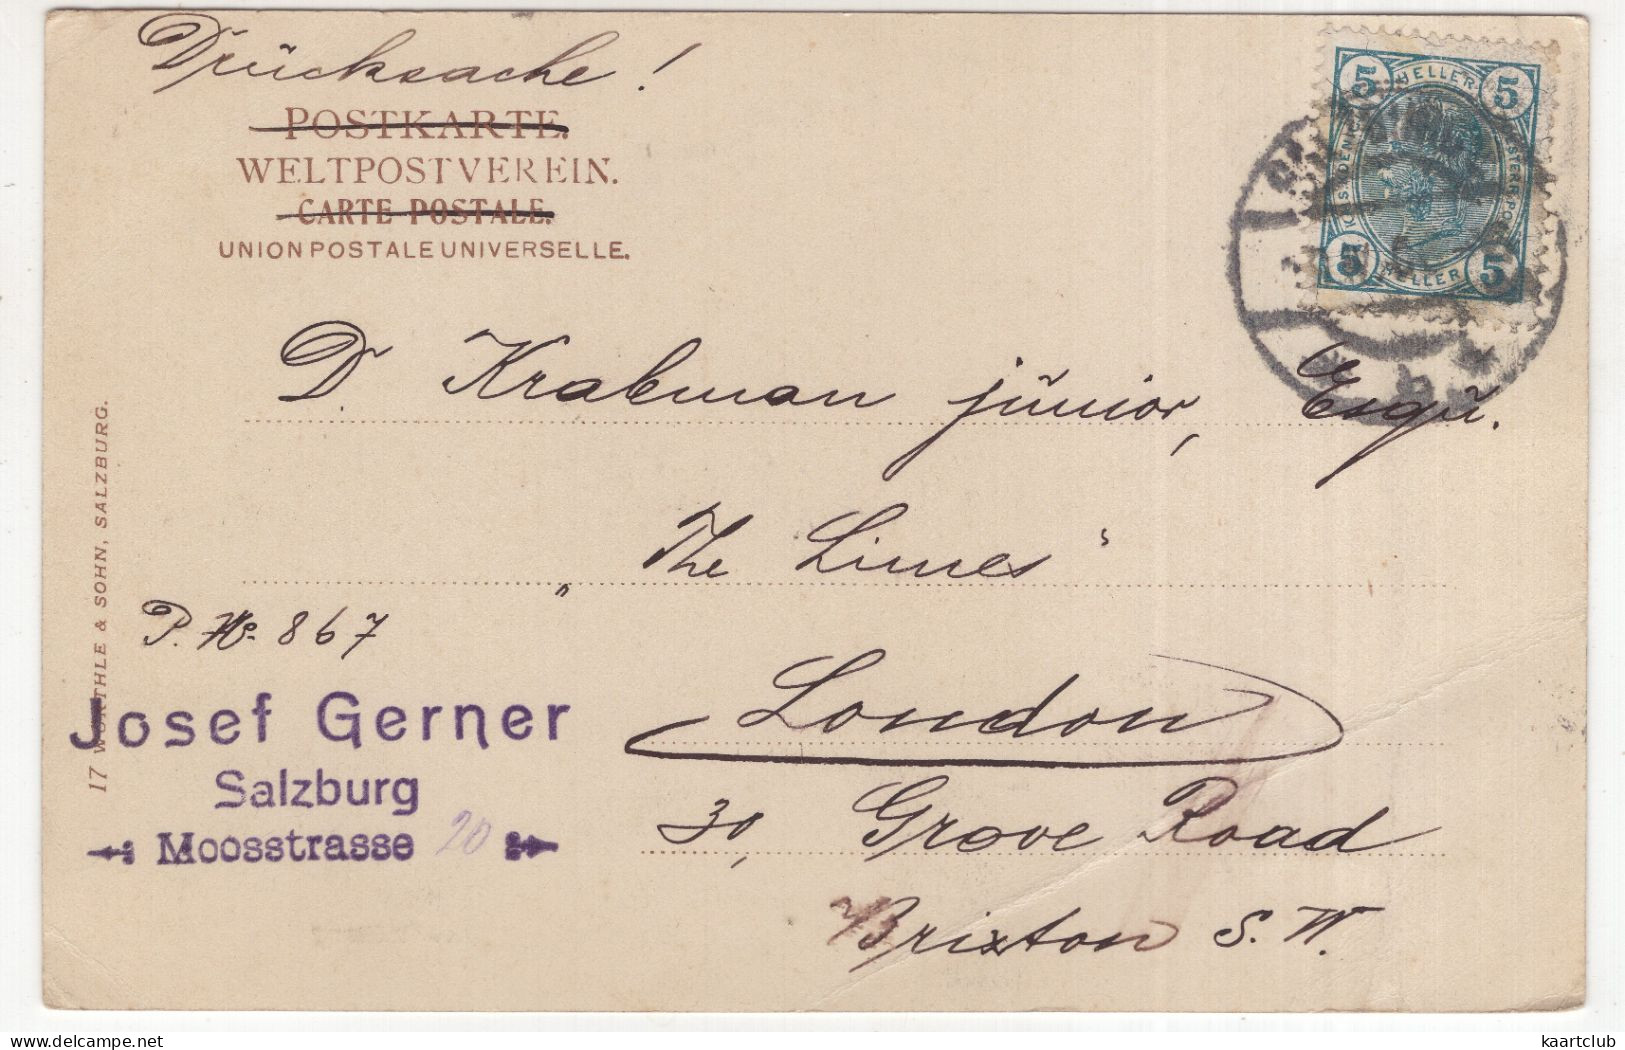 Drücksache!
POSTKARTE.
WELTPOSTVEREIN.
CARTE POSTALE.
UNION POSTALE UNIVERSELLE.
5 HELLER 5
5 HELLER 5
Dr Krabman jünior, Esqu.
"The Limes"
P. No. 867
London
30, Grove Road
Brixton S. W.
Josef Gerner
Salzburg
Moosstrasse 20
17 WÜRTHLE & SOHN, SALZBURG.
kaartclub